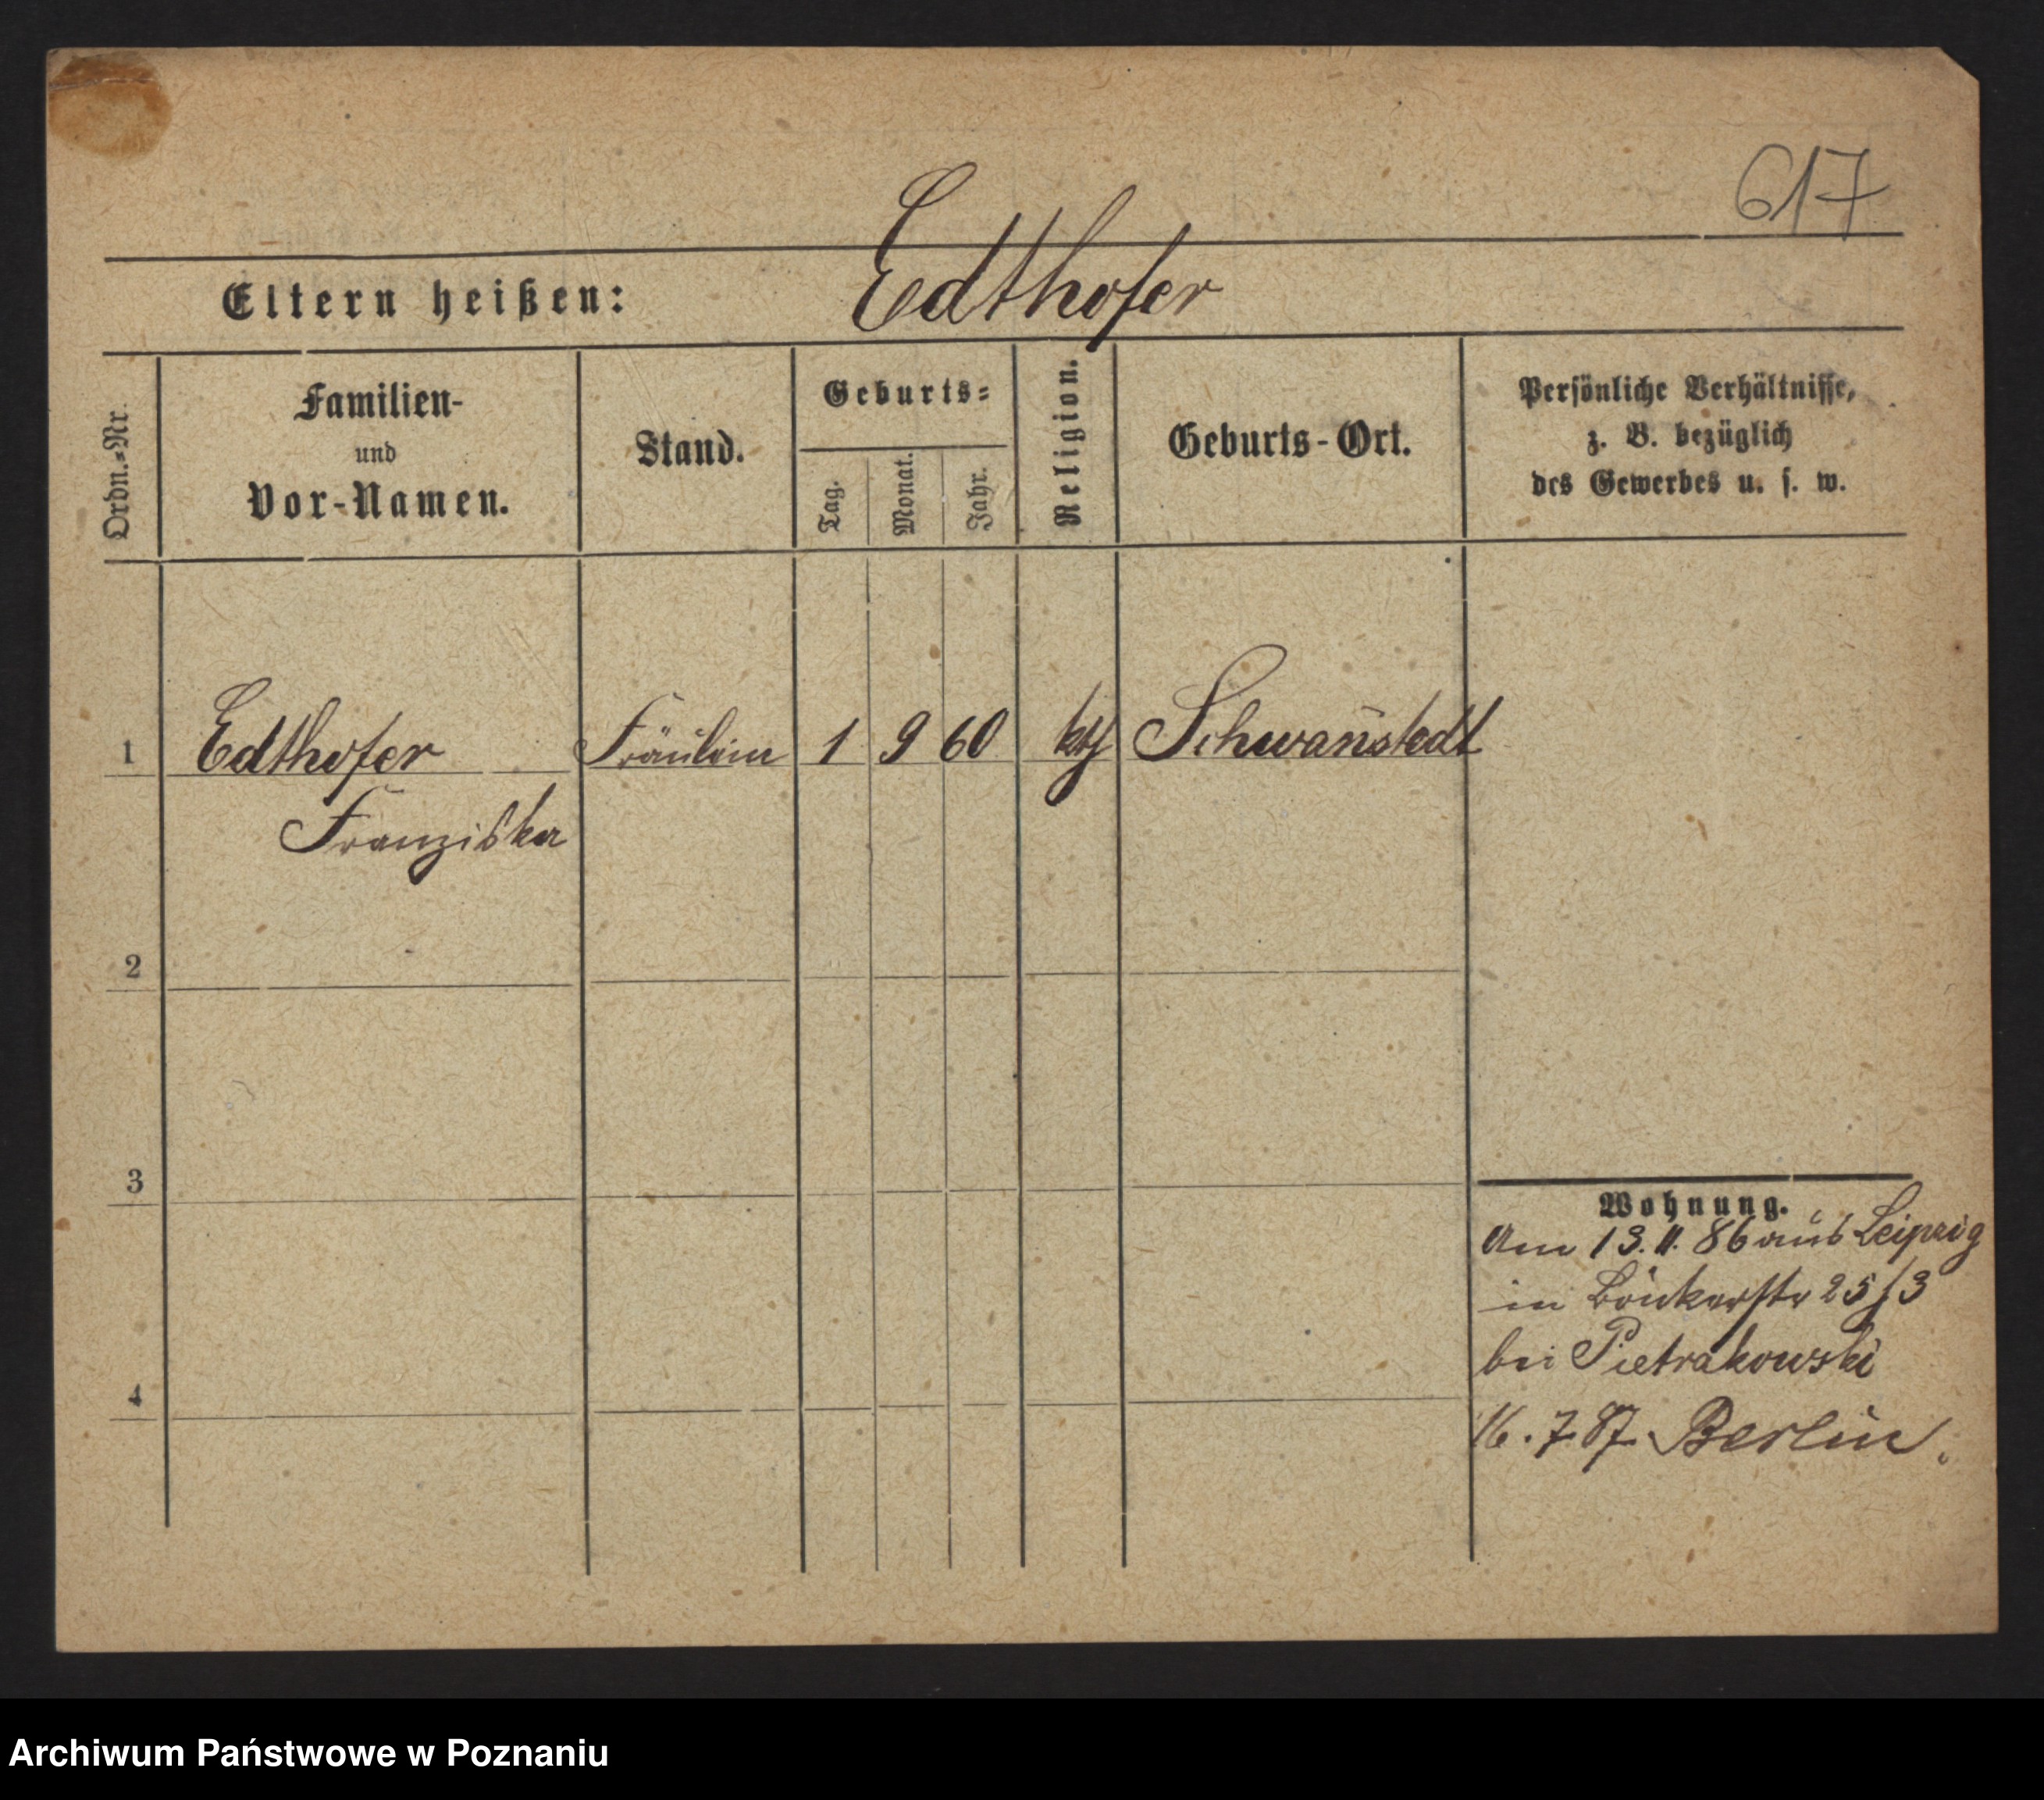 617
Edthofer
Eltern heißen:
Ordn.=Nr.
Familien-
und
Vor-Namen.
Stand.
Geburts=
Tag.
Monat.
Jahr.
Religion.
Geburts-Ort.
Persönliche Verhältnisse,
z. B. bezüglich
des Gewerbes u. s. w.
1 Edthofer Fräulein 1 9 60 kth Schwanstedt
Franziska
2
3
4
Wohnung.
Am 13. 11. 86 aus Leipzig
in 25/3
bei Pietrakowski
16. 7 87. Berlin.
Archiwum Państwowe w Poznaniu